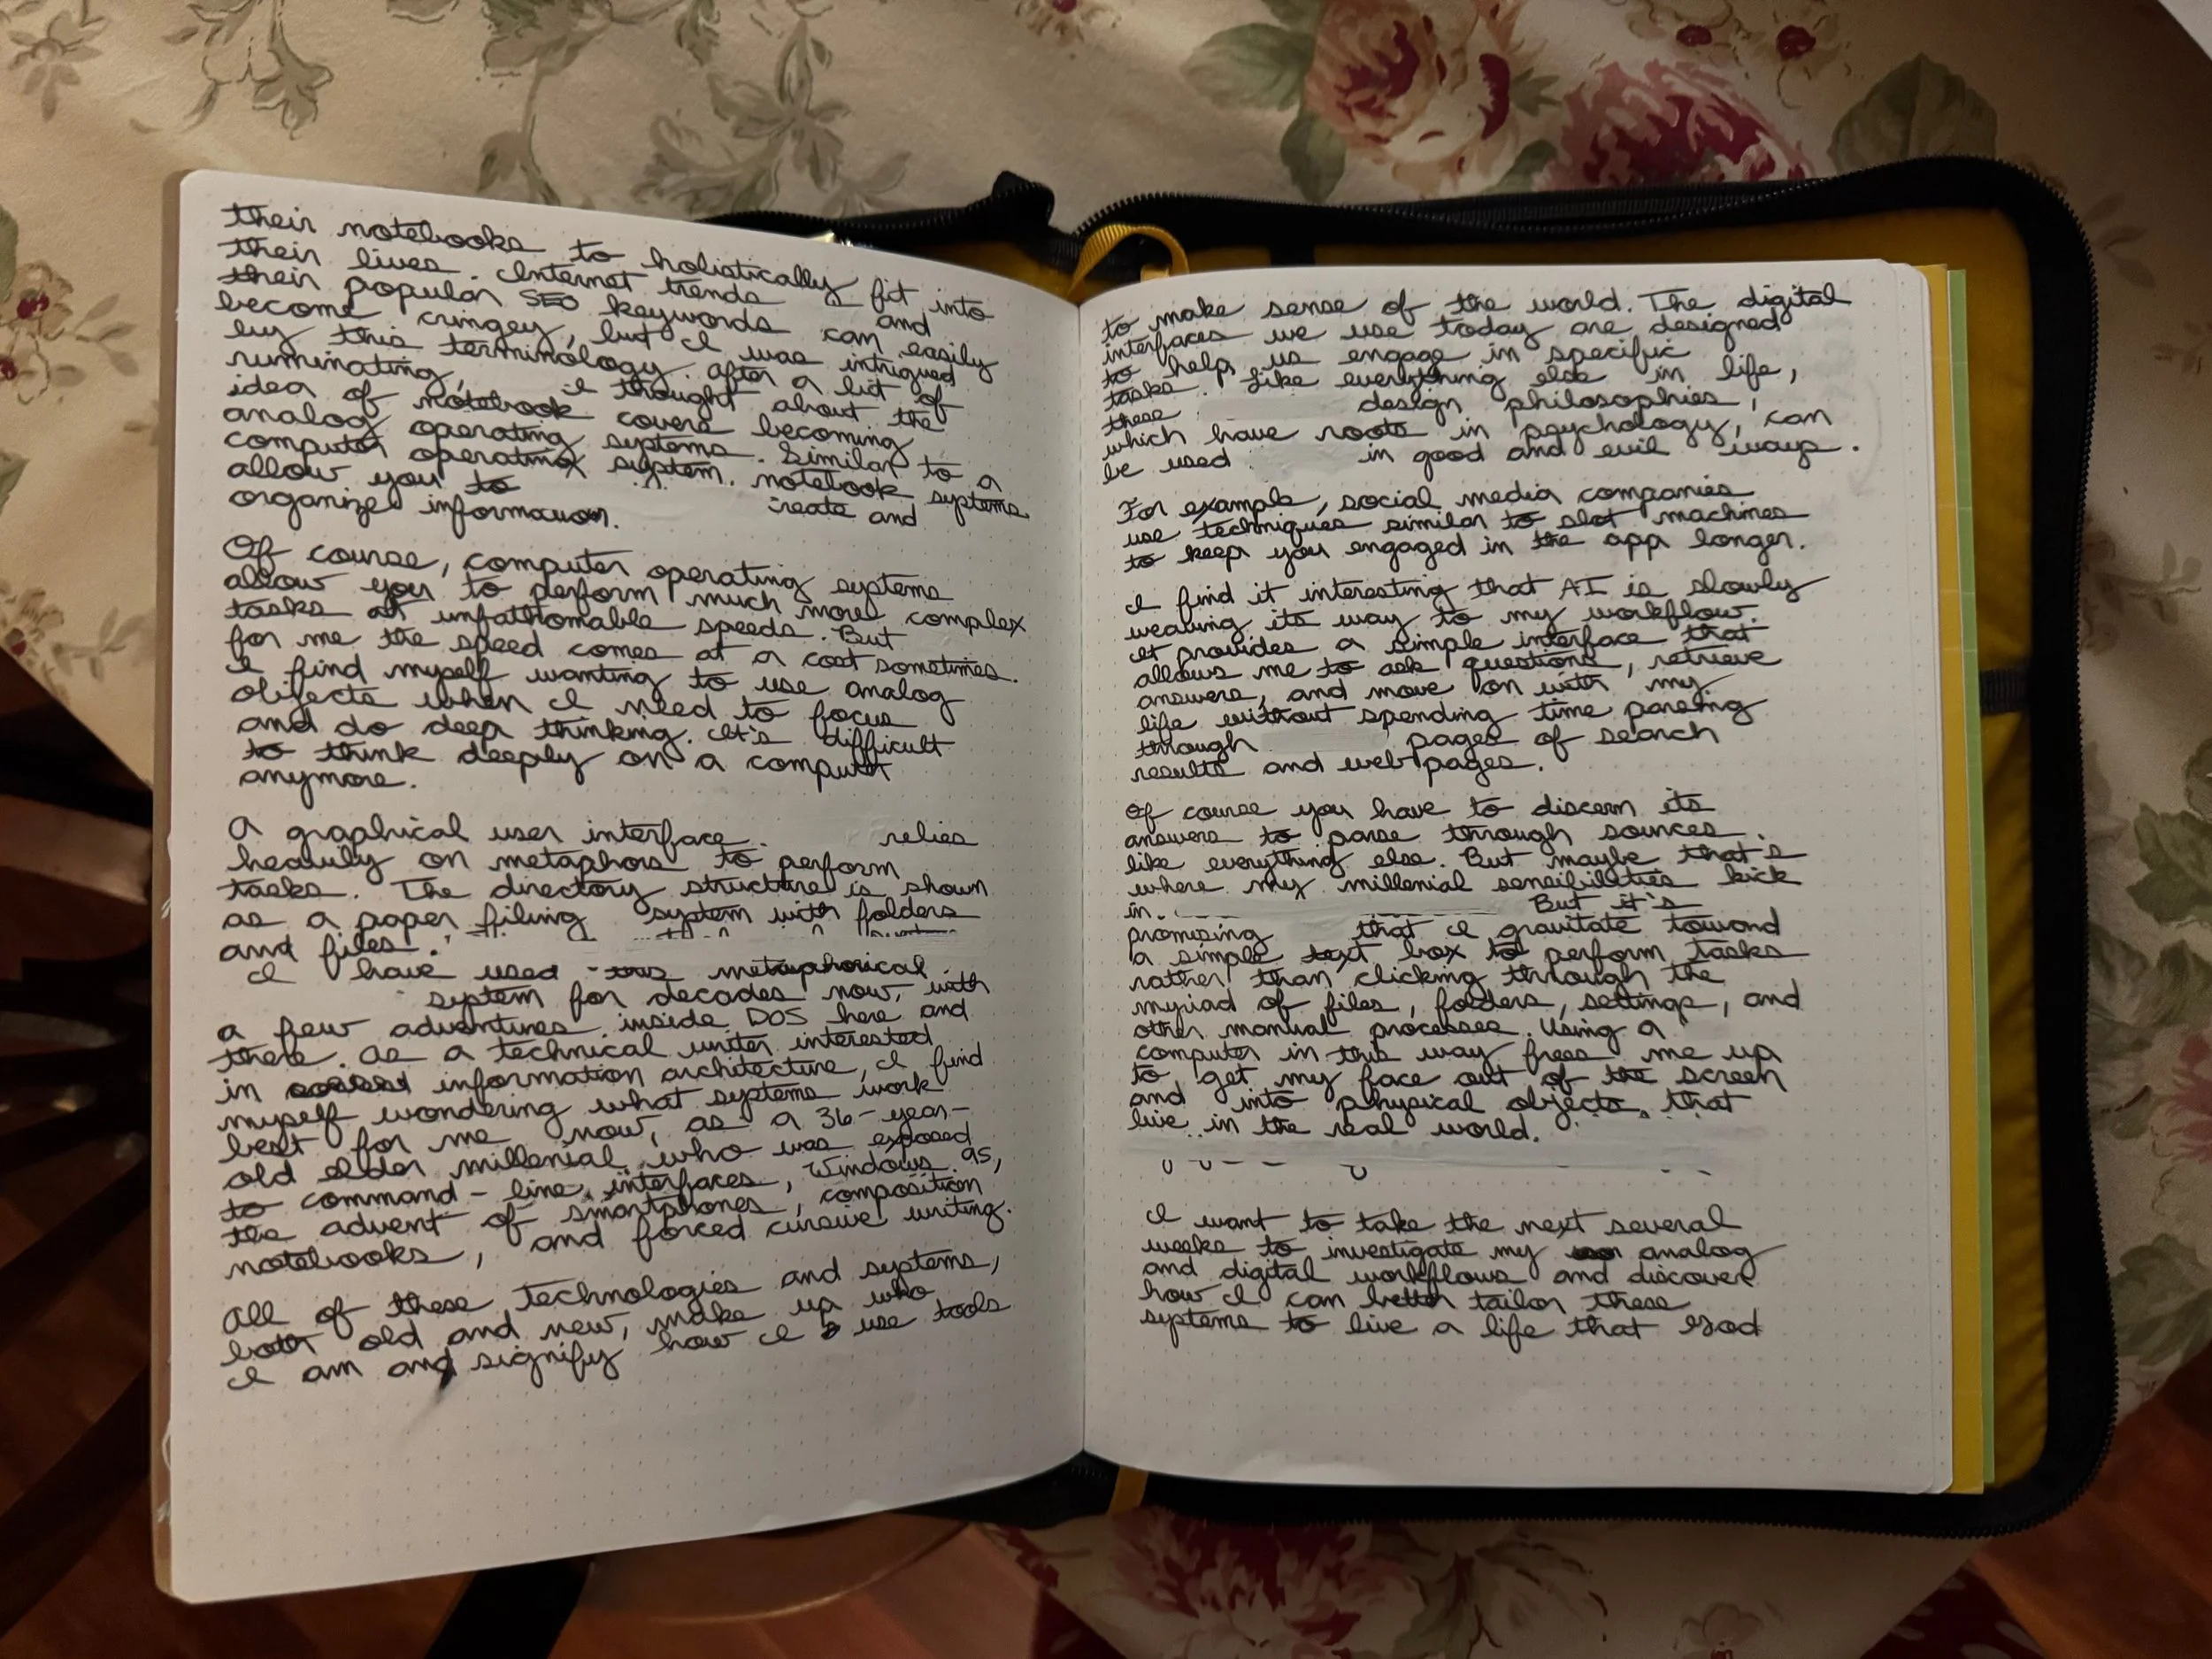 their notebooks to holistically fit into
their lives. Internet trends and
their popular SEO keywords can easily
become cringey, but I was intrigued
by this terminology. After a bit of
ruminating, I thought about the
idea of notebook covers becoming
analog operating systems. Similar to a
computer operating system, notebook systems
allow you to create and
organize information.
Of course, computer operating systems
allow you to perform much more complex
tasks at unfathomable speeds. But
for me the speed comes at a cost sometimes.
I find myself wanting to use analog
objects when I need to focus
and do deep thinking. It's difficult
to think deeply on a computer
anymore.
A graphical user interface relies
heavily on metaphors to perform
tasks. The directory structure is shown
as a paper filing system with folders
and files.
I have used this metaphorical
system for decades now, with
a few adventures inside DOS here and
there. As a technical writer interested
in information architecture, I find
myself wondering what systems work
best for me now, as a 36-year-
old elder millenial who was exposed
to command-line interfaces, Windows 95,
the advent of smartphones, composition
notebooks, and forced cursive writing.
All of these technologies and systems,
both old and new, make up who
I am and signify how I use tools
to make sense of the world. The digital
interfaces we use today are designed
to help us engage in specific
tasks. Like everything else in life,
these design philosophies,
which have roots in psychology, can
be used in good and evil ways.
For example, social media companies
use techniques similar to slot machines
to keep you engaged in the app longer.
I find it interesting that AI is slowly
weaving its way to my workflow.
It provides a simple interface that
allows me to ask questions, retrieve
answers, and move on with my
life without spending time parsing
through pages of search
results and web pages.
Of course you have to discern its
answers to parse through sources
like everything else. But maybe that's
where my millenial sensibilities kick
in. But it's
promising that I gravitate toward
a simple text box to perform tasks
rather than clicking through the
myriad of files, folders, settings, and
other manual processes. Using a
computer in this way frees me up
to get my face out of the screen
and into physical objects that
live in the real world.
I want to take the next several
weeks to investigate my analog
and digital workflows and discover
how I can better tailor these
systems to live a life that God